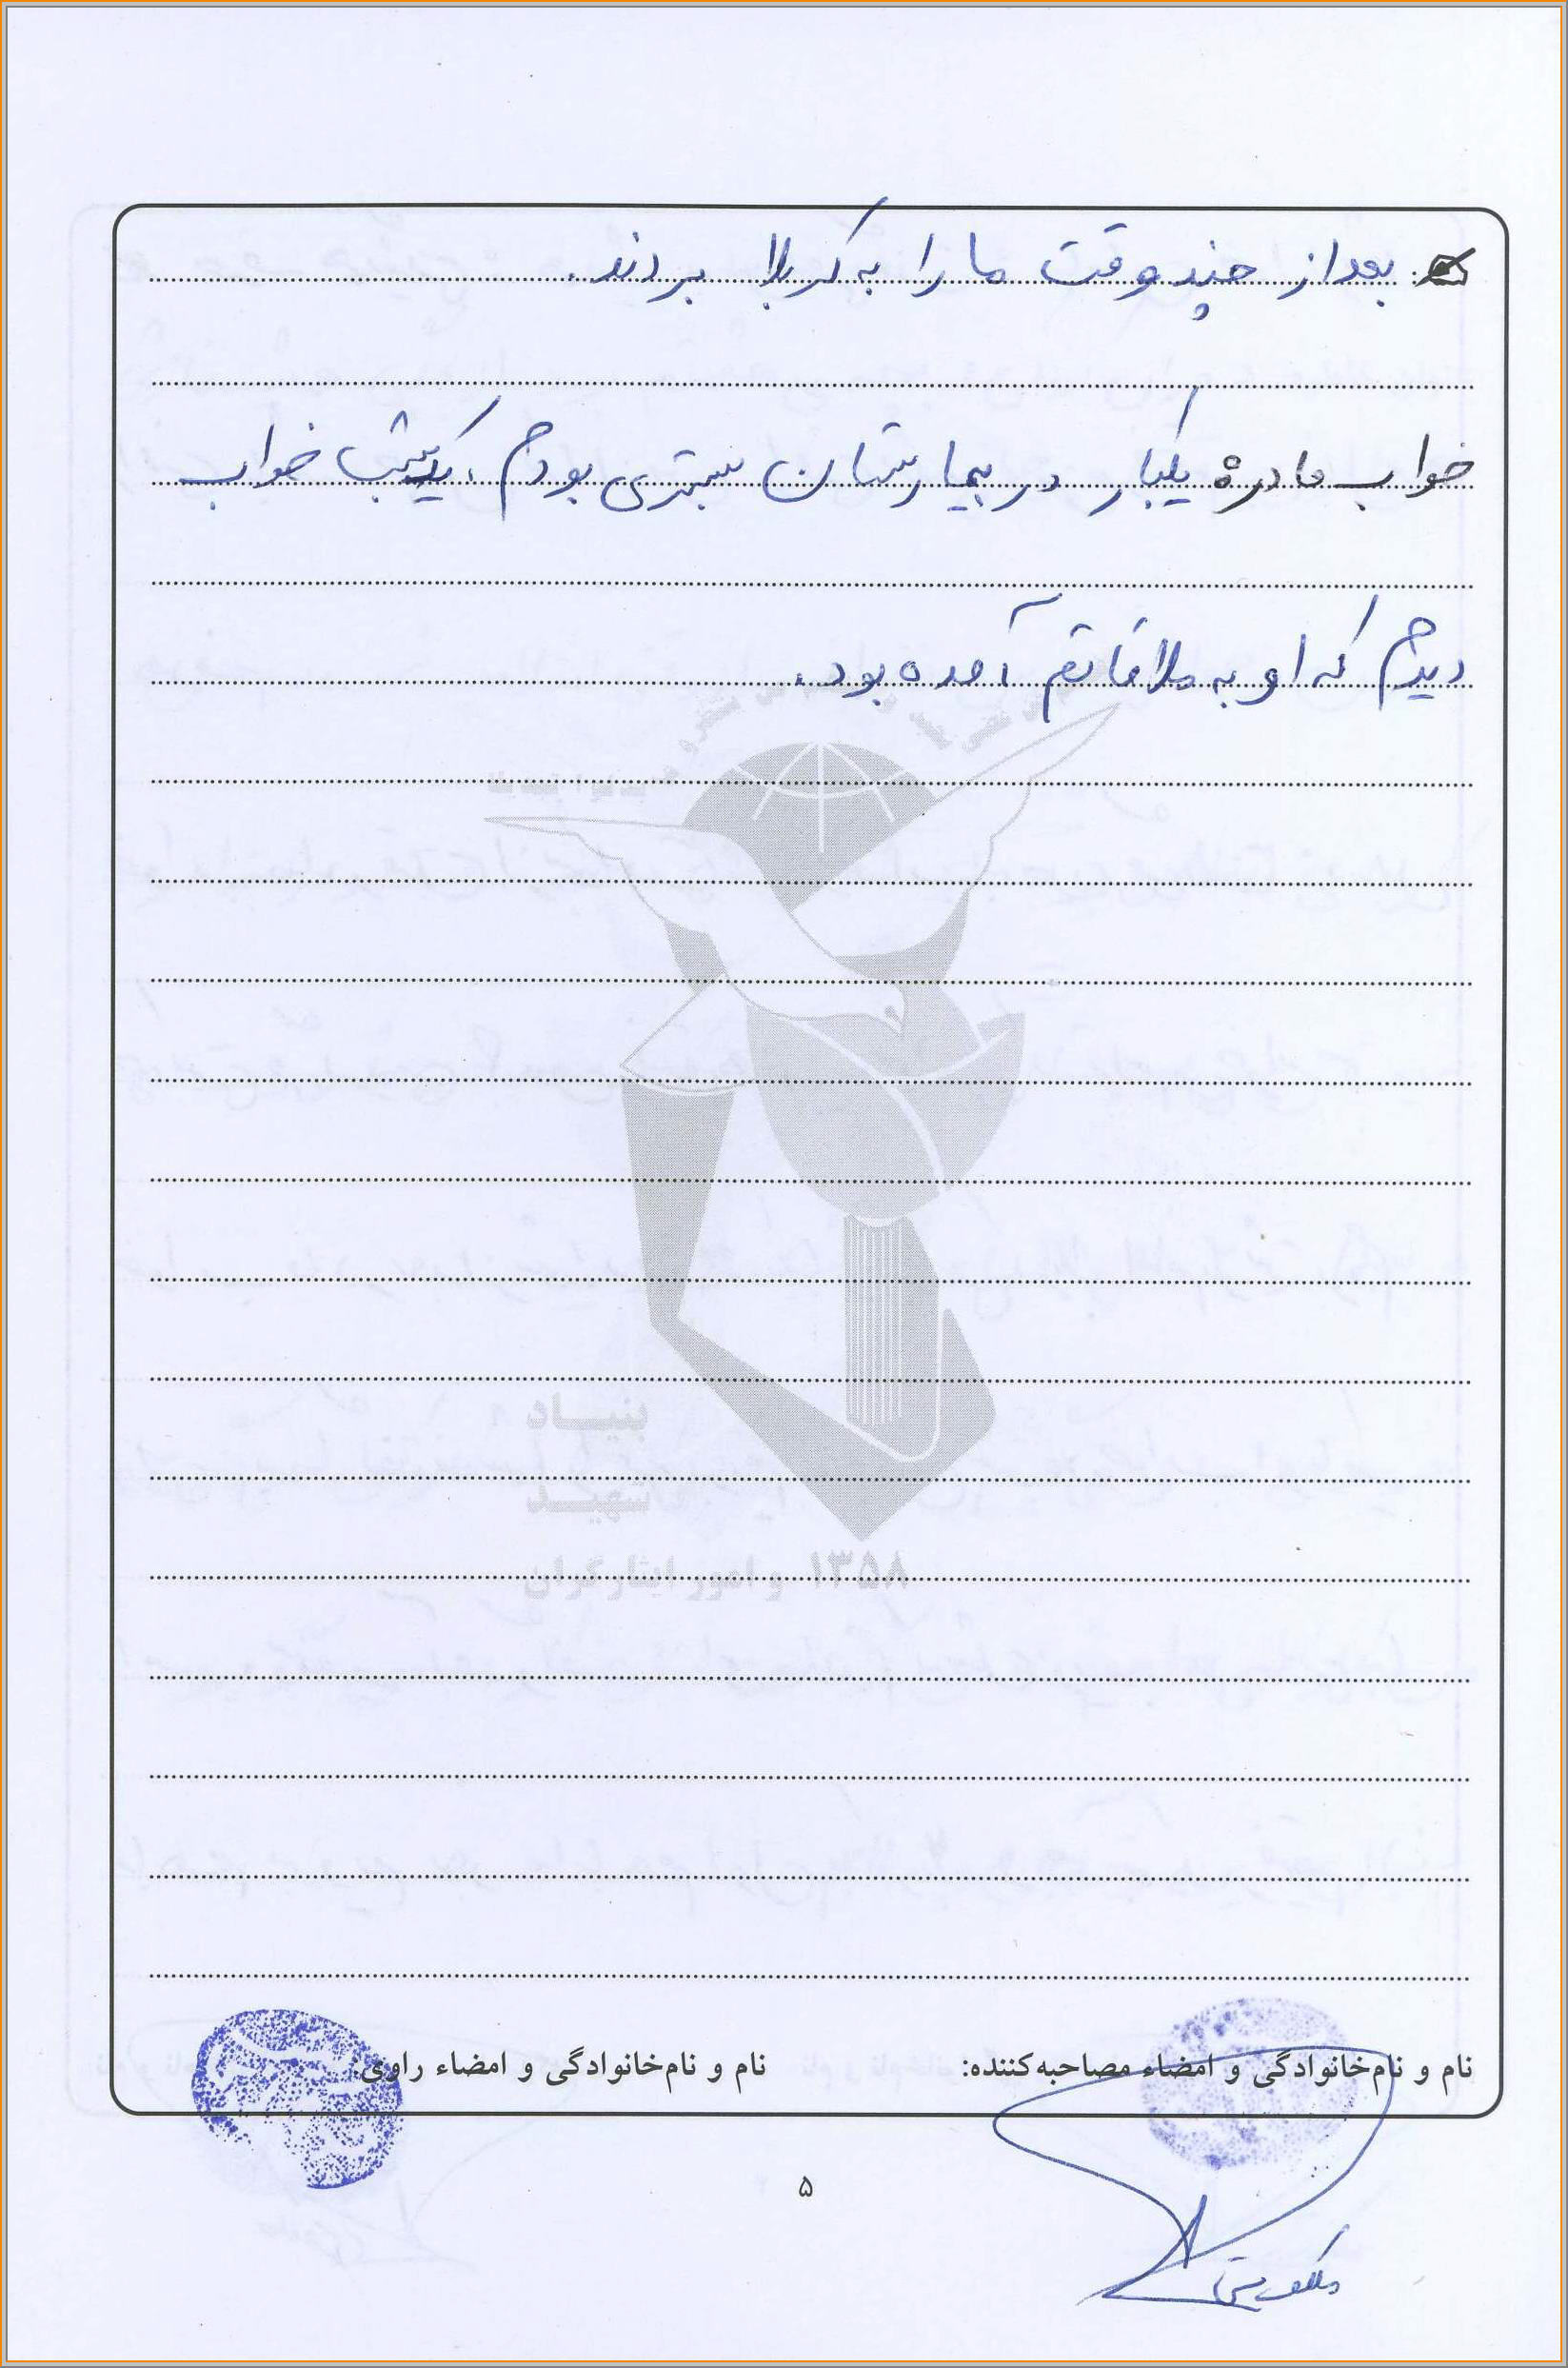 بعد از چند وقت ما را به کربلا بردند.
خواب مادر: یکبار در بیمارستان بستری بودم. یک شب خواب
دیدم که او به ملاقاتم آمده بود.
بنیاد
شهید
و امور ایثارگران ۱۳۵۸
نام و نام‌خانوادگی و امضاء مصاحبه‌کننده: نام و نام‌خانوادگی و امضاء راوی:
۵